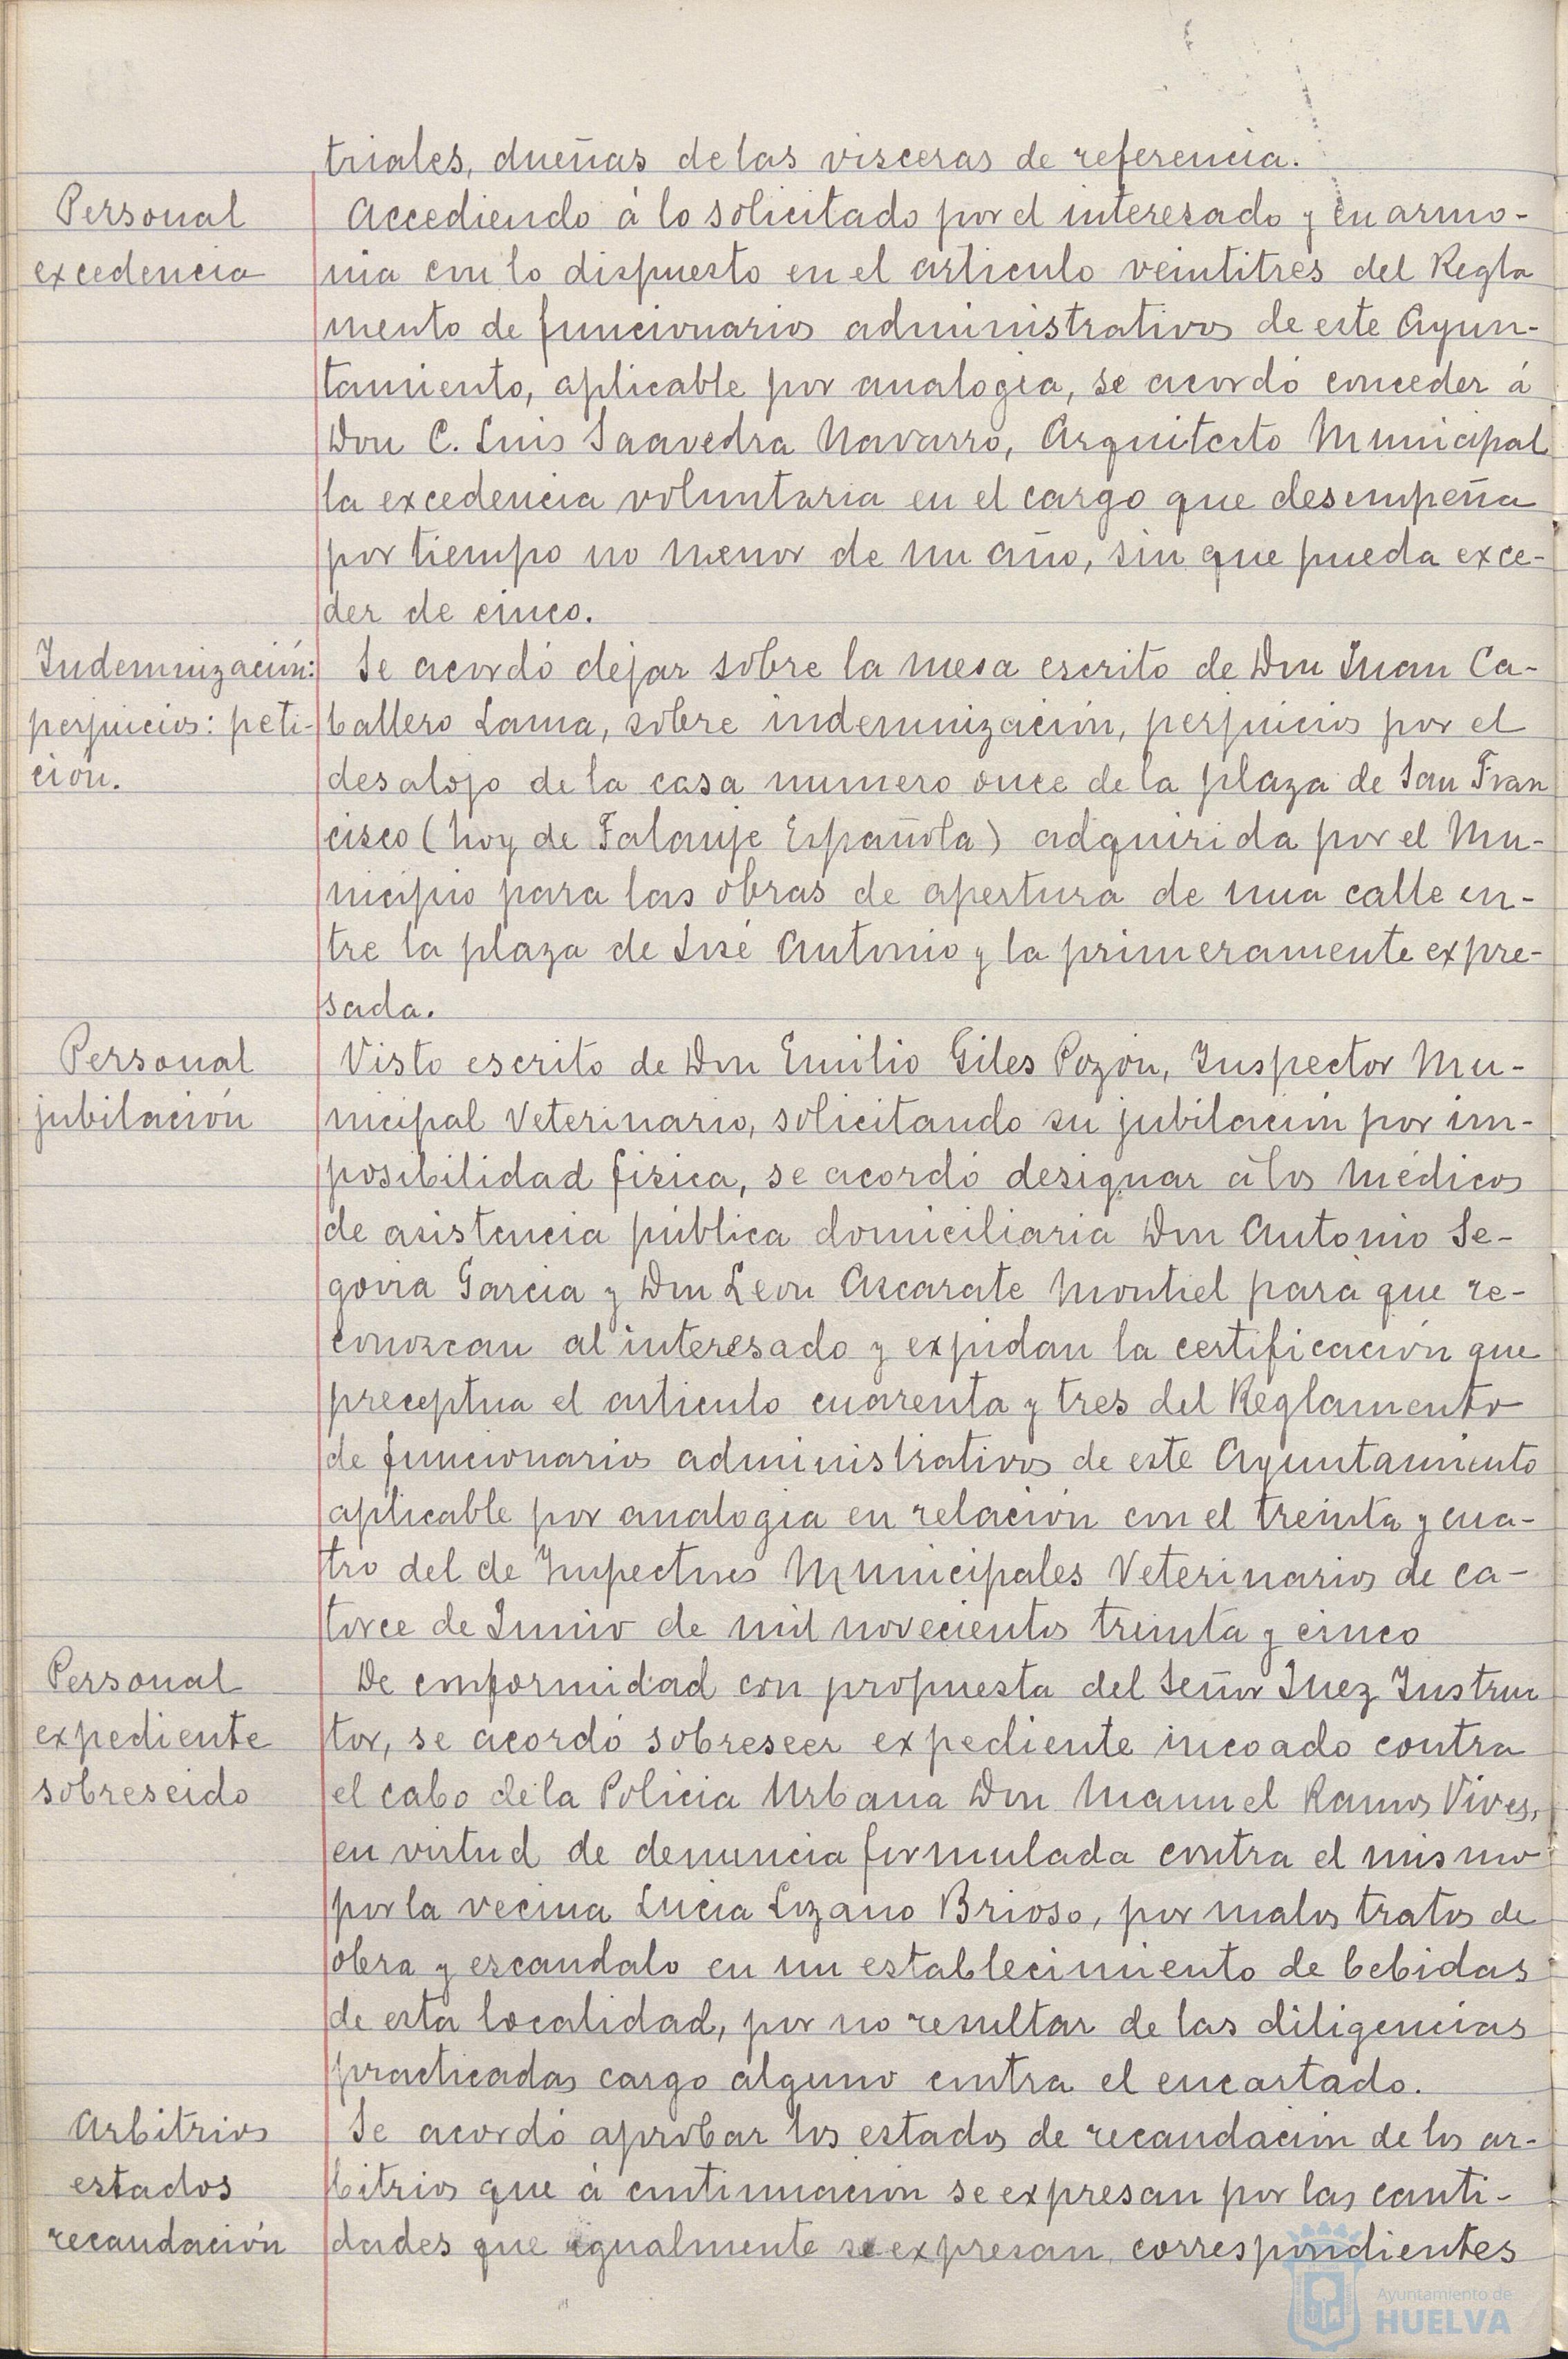 triales, dueñas de las visceras de referencia.
Personal
excedencia
Accediendo á lo solicitado por el interesado y en armo-
nia con lo dispuesto en el articulo veintitres del Regla
mento de funcionarios administrativos de este Ayun-
tamiento, aplicable por analogia, se acordó conceder á
Don C. Luis Saavedra Navarro, Arquitecto Municipal
la excedencia voluntaria en el cargo que desempeña
por tiempo no menor de un año, sin que pueda exce-
der de cinco.
Indemnización:
perjuicios: peti-
ción.
Se acordó dejar sobre la mesa escrito de Don Juan Ca-
ballero Lama, sobre indemnización, perjuicios por el
desalojo de la casa numero once de la plaza de San Fran
cisco (hoy de Falange Española) adquirida por el Mu-
nicipio para las obras de apertura de una calle en-
tre la plaza de José Antonio y la primeramente expre-
sada.
Personal
jubilación
Visto escrito de Don Emilio Giles Pozón, Inspector Mu-
nicipal Veterinario, solicitando su jubilación por im-
posibilidad fisica, se acordó designar á los Médicos
de asistencia pública domiciliaria Don Antonio Se-
govia Garcia y Don Leon Azcarate Montiel para que re-
conozcan al interesado y expidan la certificación que
preceptua el articulo cuarenta y tres del Reglamento
de funcionarios administrativos de este Ayuntamiento
aplicable por analogia en relación con el treinta y cua-
tro del de Inspectores Municipales Veterinarios de ca-
torce de Junio de mil novecientos treinta y cinco
Personal
expediente
sobreseido
De conformidad con propuesta del Señor Juez Instruc
tor, se acordó sobreseer expediente incoado contra
el cabo de la Policia Urbana Don Manuel Ramos Vives,
en virtud de denuncia formulada contra el mismo
por la vecina Lucia Lozano Brioso, por malos tratos de
obra y escandalo en un establecimiento de bebidas
de esta localidad, por no resultar de las diligencias
practicadas cargo alguno contra el encartado.
Arbitrios
estados
recaudación
Se acordó aprobar los estados de recaudación de los ar-
bitrios que á continuación se expresan por las canti-
dades que igualmente se expresan, correspondientes
Ayuntamiento de
HUELVA